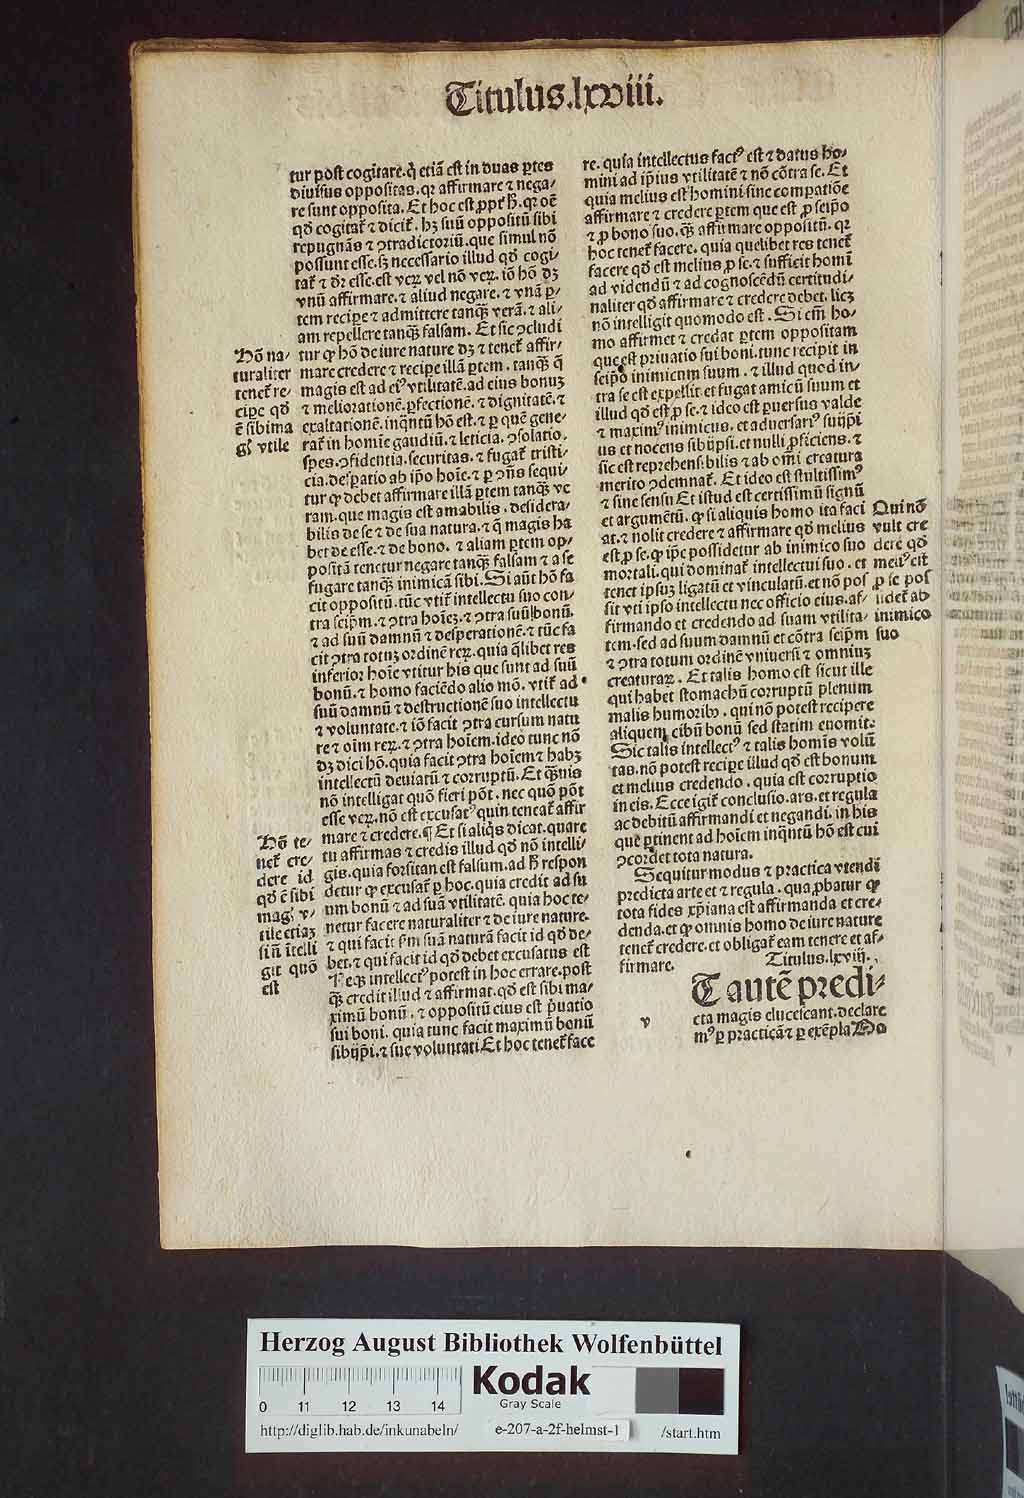 Titulus.lxviii.
tur post cogitare.q̃ etiã est in duas ꝑtes
diuisus oppositas.qꝛ affirmare ⁊ nega-
re sunt opposita. Et hoc est ꝓpt̃ h̃.qꝛ oẽ
qd̃ cogitat̃ ⁊ dicit̃. hꝫ suũ oppositũ sibi
repugnãs ⁊ ꝯtradictoriũ.que simul nõ
possunt esse.sꝫ necessario illud qd̃ cogi-
tat̃ ⁊ dr̃ esse.est veꝝ vel nõ veꝝ. iõ hõ dꝫ
vnũ affirmare.⁊ aliud negare.⁊ vnã ꝑ-
tem recipe ⁊ admittere tanqꝫ verã.⁊ ali-
am repellere tanqꝫ falsam. Et sic ꝯcludi
tur ꝙ hõ de iure nature dꝫ ⁊ tenet̃ affir-
mare credere ⁊ recipe illã ꝑtem. tanqꝫ q̃
magis est ad eiꝰ vtilitatẽ.ad eius bonuꝫ
⁊ meliorationẽ.ꝑfectionẽ.⁊ dignitatẽ.⁊
exaltationẽ.inq̃ntũ hõ est.⁊ ꝑ quẽ gene-
rat̃ in homĩe gaudiũ.⁊ leticia.ꝯsolatio.
spes.ꝯfidentia.securitas.⁊ fugat̃ tristi-
cia.despatio ab ip̃o hoĩe.⁊ ꝑ ꝯñs sequi-
tur ꝙ debet affirmare illã ꝑtem tanqꝫ ve
ram.que magis est amabilis.desidera-
bilis de se ⁊ de sua natura.⁊ q̃ magis ha
bet de esse.⁊ de bono. ⁊ aliam ꝑtem op-
positã tenetur negare tanqꝫ falsam ⁊ a se
fugare tanqꝫ inimicã sibi. Si aũt hõ fa
cit oppositũ.tũc vtit̃ intellectu suo con-
tra seip̃m.⁊ ꝯtra hoĩeꝫ.⁊ ꝯtra suũ bonũ.
⁊ ad suũ damnũ ⁊ desperationẽ.⁊ tũc fa
cit ꝯtra totuꝫ ordinẽ reꝝ.quia q̃libet res
inferior hoĩe vtitur his que sunt ad suũ
bonũ.⁊ homo faciẽdo alio mõ. vtit̃ ad
suũ damnũ ⁊ destructionẽ suo intellectu
⁊ voluntate.⁊ iõ facit ꝯtra cursum natu
re ⁊ oĩm reꝝ.⁊ ꝯtra hoĩem.ideo tunc nõ
dꝫ dici hõ.quia facit ꝯtra hoĩem ⁊ habꝫ
intellectũ deuiatũ ⁊ corruptũ. Et qꝫuis
nõ intelligat quõ fieri põt. nec quõ põt
esse veꝝ.nõ est excusatꝰ quin teneat̃ affir
mare ⁊ credere.¶ Et si aliq̃s dicat.quare
tu affirmas ⁊ credis illud qd̃ nõ intelli-
gis.quia forsitan est falsum.ad h̃ respon
detur ꝙ excusat̃ ꝑ hoc.quia credit ad su
um bonũ ⁊ ad suã vtilitatẽ. quia hoc te-
netur facere naturaliter ⁊ de iure nature.
⁊ qui facit ẜm suã naturã facit id qd̃ de-
bet.⁊ qui facit id qd̃ debet excusatus est
Neqꝫ intellectꝰ potest in hoc errare.post
qꝫ credit illud ⁊ affirmat.qd̃ est sibi ma-
ximũ bonũ. ⁊ oppositũ eius est p̃uatio
sui boni. quia tunc facit maximũ bonũ
sibijp̃i.⁊ sue voluntati Et hoc tenet̃ face
Hõ na-
turaliter
tenet̃ re-
cipe qd̃
ẽ sibi ma
gꝭ vtile
Hõ te-
net̃ cre-
dere id
qd̃ ẽ sibi
magꝭ v-
tile etiaꝫ
si nõ ĩtelli
git quõ
est
re. quia intellectus factꝰ est ⁊ datus ho-
mini ad ip̃ius vtilitatẽ ⁊ nõ cõtra se. Et
quia melius est homini sine compatiõe
affirmare ⁊ credere ꝑtem que est ꝓ seip̃o
⁊ ꝓ bono suo.qꝫ affirmare oppositũ. qꝛ
hoc tenet̃ facere. quia quelibet res tenet̃
facere qd̃ est melius ꝓ se.⁊ sufficit homĩ
ad videndũ ⁊ ad cognoscẽdũ certitudi-
naliter qd̃ affirmare ⁊ credere debet. licꝫ
nõ intelligit quomodo est. Si em̃ ho-
mo affirmet ⁊ credat ꝑtem oppositam
que est priuatio sui boni.tunc recipit in
seip̃o inimicum suum. ⁊ illud quod in-
tra se est expellit et fugat amicũ suum et
illud qd̃ est ꝓ se.⁊ ideo est puersus valde
⁊ maximꝰ inimicus. et aduersariꝰ suijp̃i
us et nocens sibijpsi.et nulli ꝓficiens.⁊
sic est reprehensibilis ⁊ ab om̃i creatura
merito ꝯdemnat̃. Et ideo est stultissimꝰ
⁊ sine sensu Et istud est certissimũ signũ
et argumẽtũ. ꝙ si aliquis homo ita faci
at.⁊ nolit credere ⁊ affirmare qd̃ melius
est ꝓ se.ꝙ ip̃e possidetur ab inimico suo
mortali.qui dominat̃ intellectui suo. et
tenet ipsuꝫ ligatũ et vinculatũ.et nõ pos
sit vti ipso intellectu nec officio eius.af-
firmando et credendo ad suam vtilita-
tem.sed ad suum damnũ et cõtra seip̃m
⁊ ꝯtra totum ordinẽ vniuersi ⁊ omniuꝫ
creaturaꝝ. Et talis homo est sicut ille
qui habet stomachũ corruptũ plenum
malis humoribꝰ. qui nõ potest recipere
aliquem cibũ bonũ sed statim enomit.
Sic talis intellectꝰ ⁊ talis homĩs volũ
tas.nõ potest recipe illud qd̃ est bonum
et melius credendo. quia est corruptio
in eis. Ecce igit̃ conclusio.ars.et regula
ac debitũ affirmandi et negandi. in his
que ꝑtinent ad hoĩem inq̃ntũ hõ est cui
ꝯcordet tota natura.
Sequitur modus ⁊ practica vtendi
predicta arte et ⁊ regula. qua ꝓbatur ꝙ
tota fides xp̃iana est affirmanda et cre-
denda.et ꝙ omnis homo de iure nature
tenet̃ credere.et obligat̃ eam tenere et af-
firmare. Titulus.lxviij.
Ut autẽ predi-
cta magis elucescant.declare
v
mꝰ ꝑ practicã ⁊ ꝑ exẽpla Ho
Qui nõ
vult cre
dere qd̃
meliꝰ est
ꝓ se pos
sidet̃ ab
inimico
suo
Herzog August Bibliothek Wolfenbüttel
Kodak
Gray Scale
0 11 12 13 14
http://diglib.hab.de/inkunabeln/ e-207-a-2f-helmst-1 /start.htm